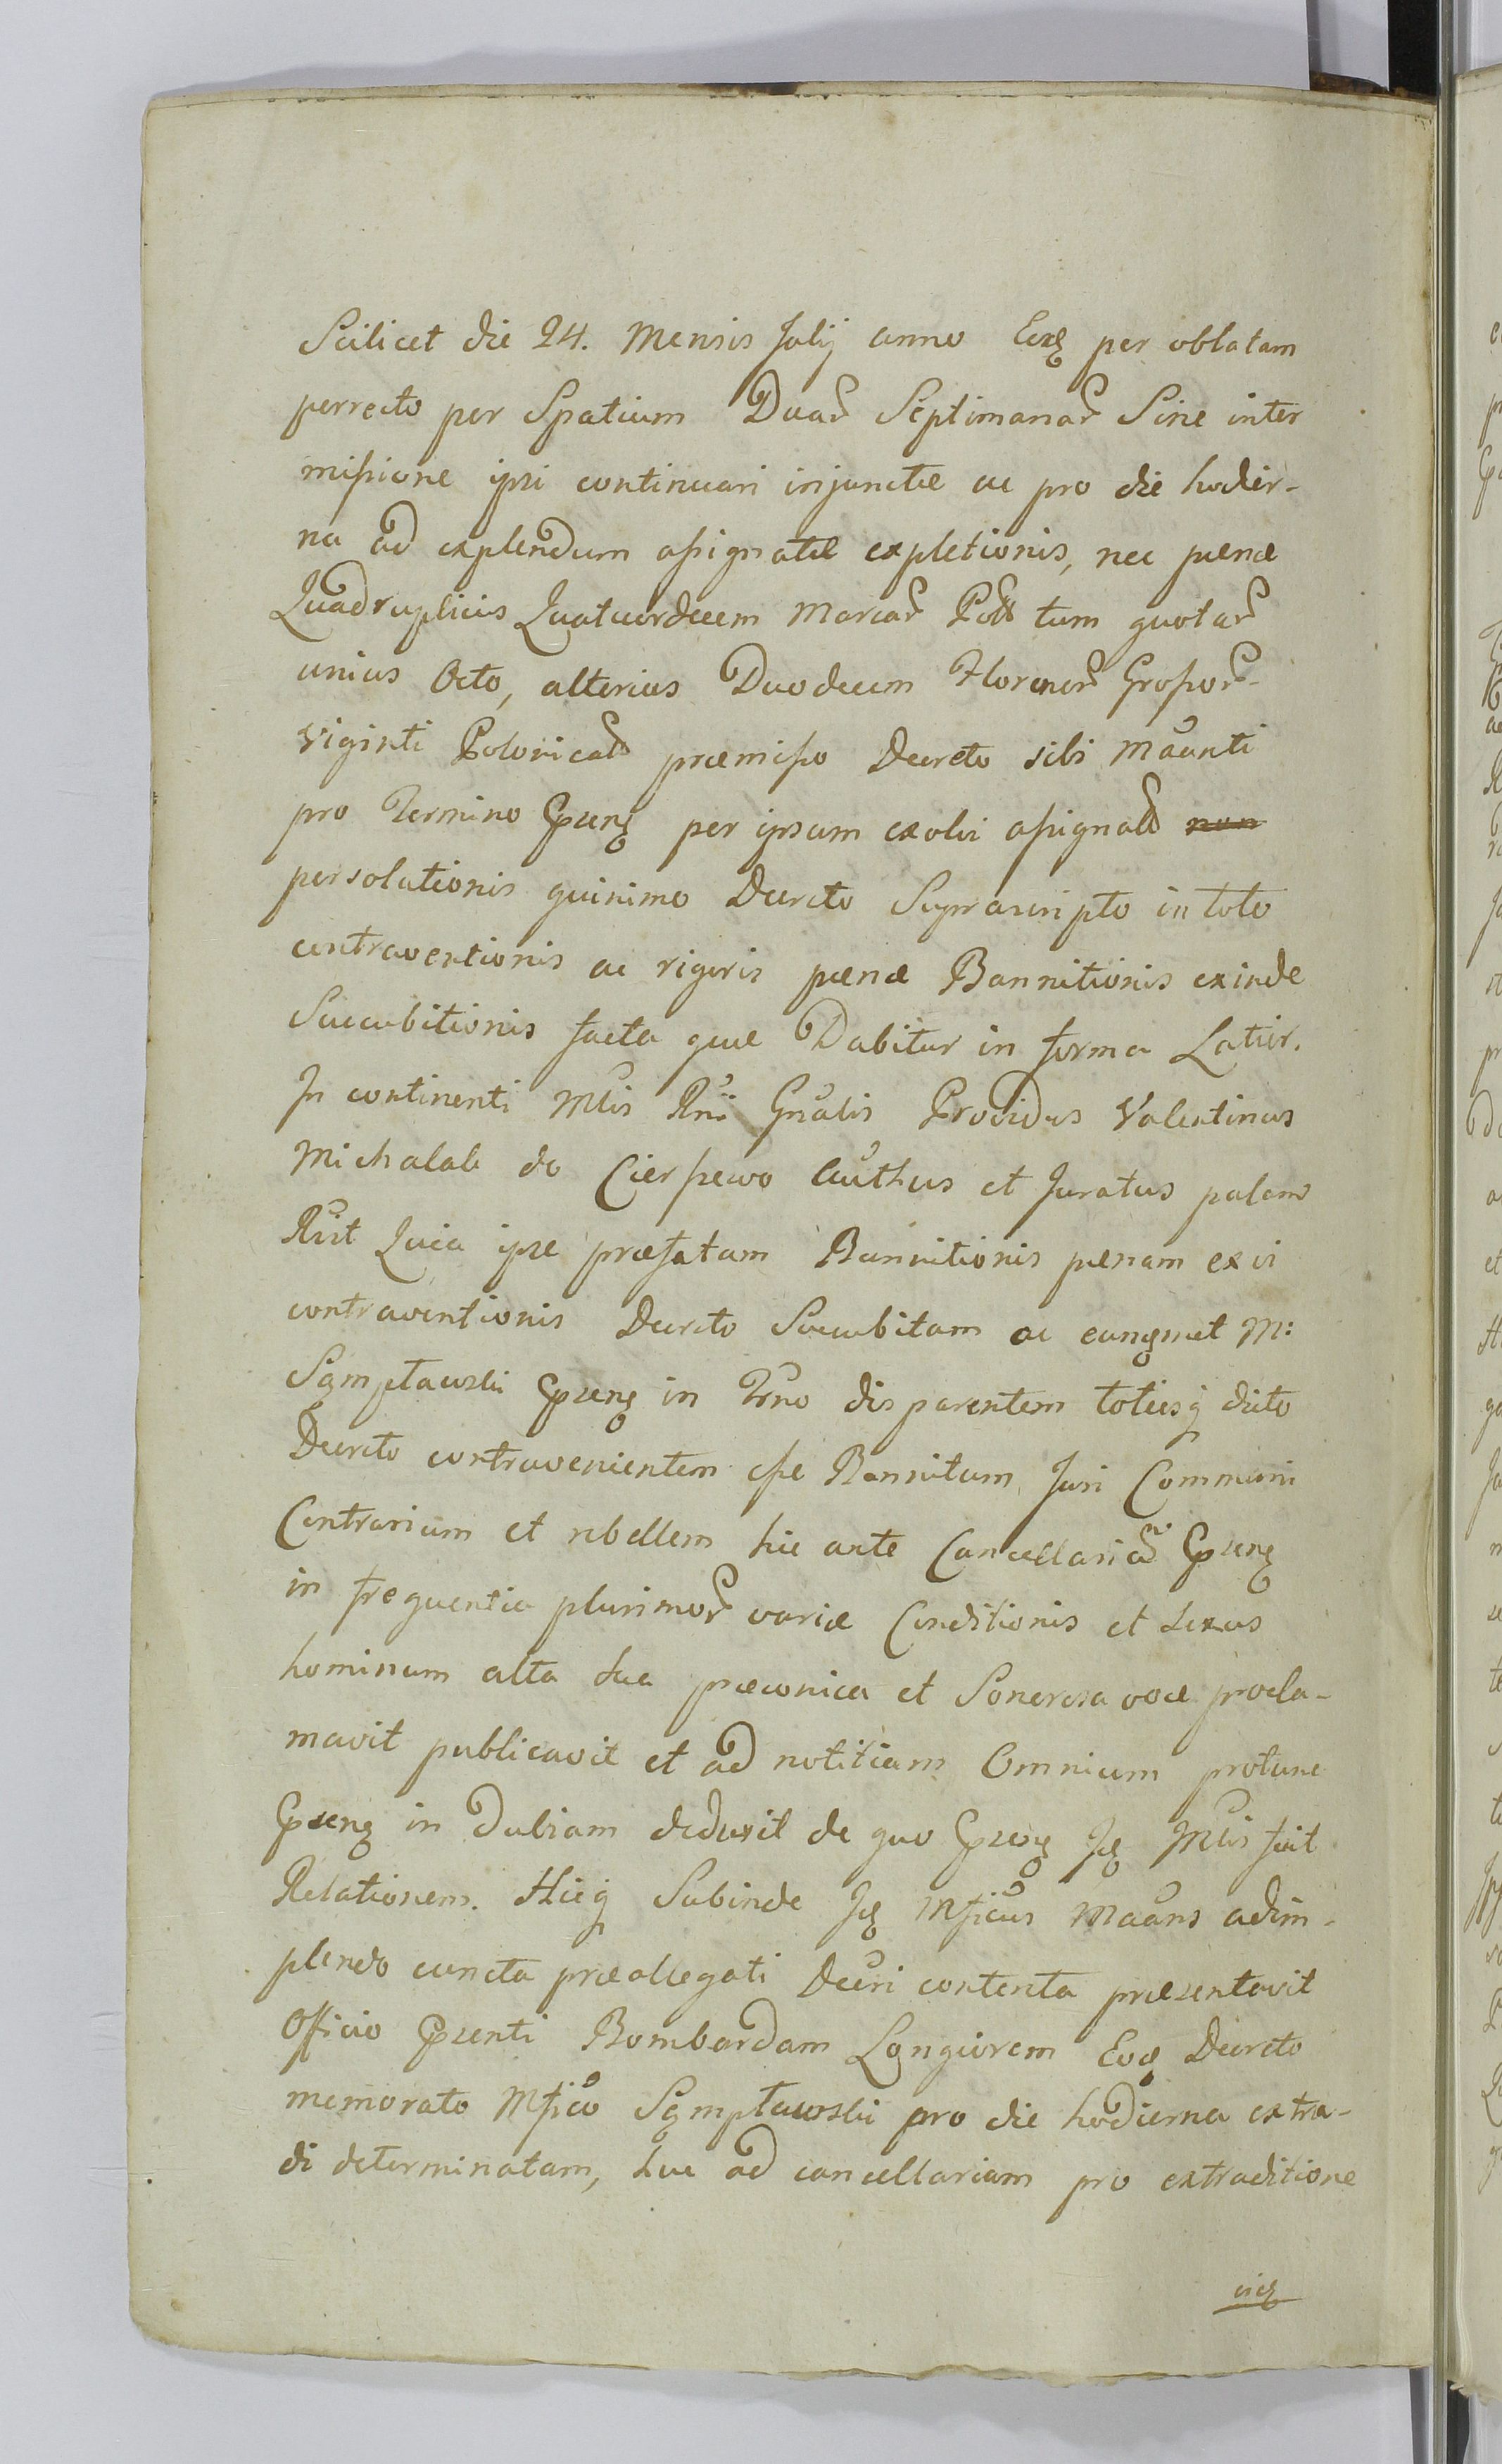 Scilicet die 24. Mensis Julij anno per oblatam
perrecto per Spatium Duar Septimanar Sine inter
missione ipsi continuari injunctæ ac pro die hodier-
na ad explendum assignatæ expletionis, nec pænæ
Quadruplicis Quatuordecem Marcar Poll tum quotar
unius Octo, alterius Duodecem Florenor Grossor
viginti Polonical præmisso Decreto sibi Maanti
pro Termino per ipsum exolvi assignatt non
persolutionis quinimo Decreto Suprascripto in toto
contraventionis ac rigoris pænæ Bannitionis exinde
Succubitionis facta quæ Dabitur in forma Latior.
In continenti Mlis Rnii Gnalis Providus Valentinus
Michalak de Cierpewo Authus et Juratus palam
Rcit Quia ipse præfatam Bannitionis pænam ex vi
contraventionis Decreto Succubitam ac eunqmet M:
in Trno disparentem totiesq dicto
Decreto contravenientem esse Bannitum Juri Communi
Contrarium et rebellem hic ante Cancellaria
in frequentia plurimor variæ Conditionis et Sexus
hominum alta sua præconica et Sonorosa voce procla-
mavit publicavit et ad notitiam Omnium protunc
in dubiam deduxit de quo Mlis fecit
Relationem. Hicq Subinde Mficus Maans adim-
plendo cuncta præallegati Decri contenta præsentavit
Officio Psenti Bombardam Longiorem Eoq Decreto
memorato Mfico pro die hodierna extra-
di determinatam, huc ad cancellariam pro extraditione